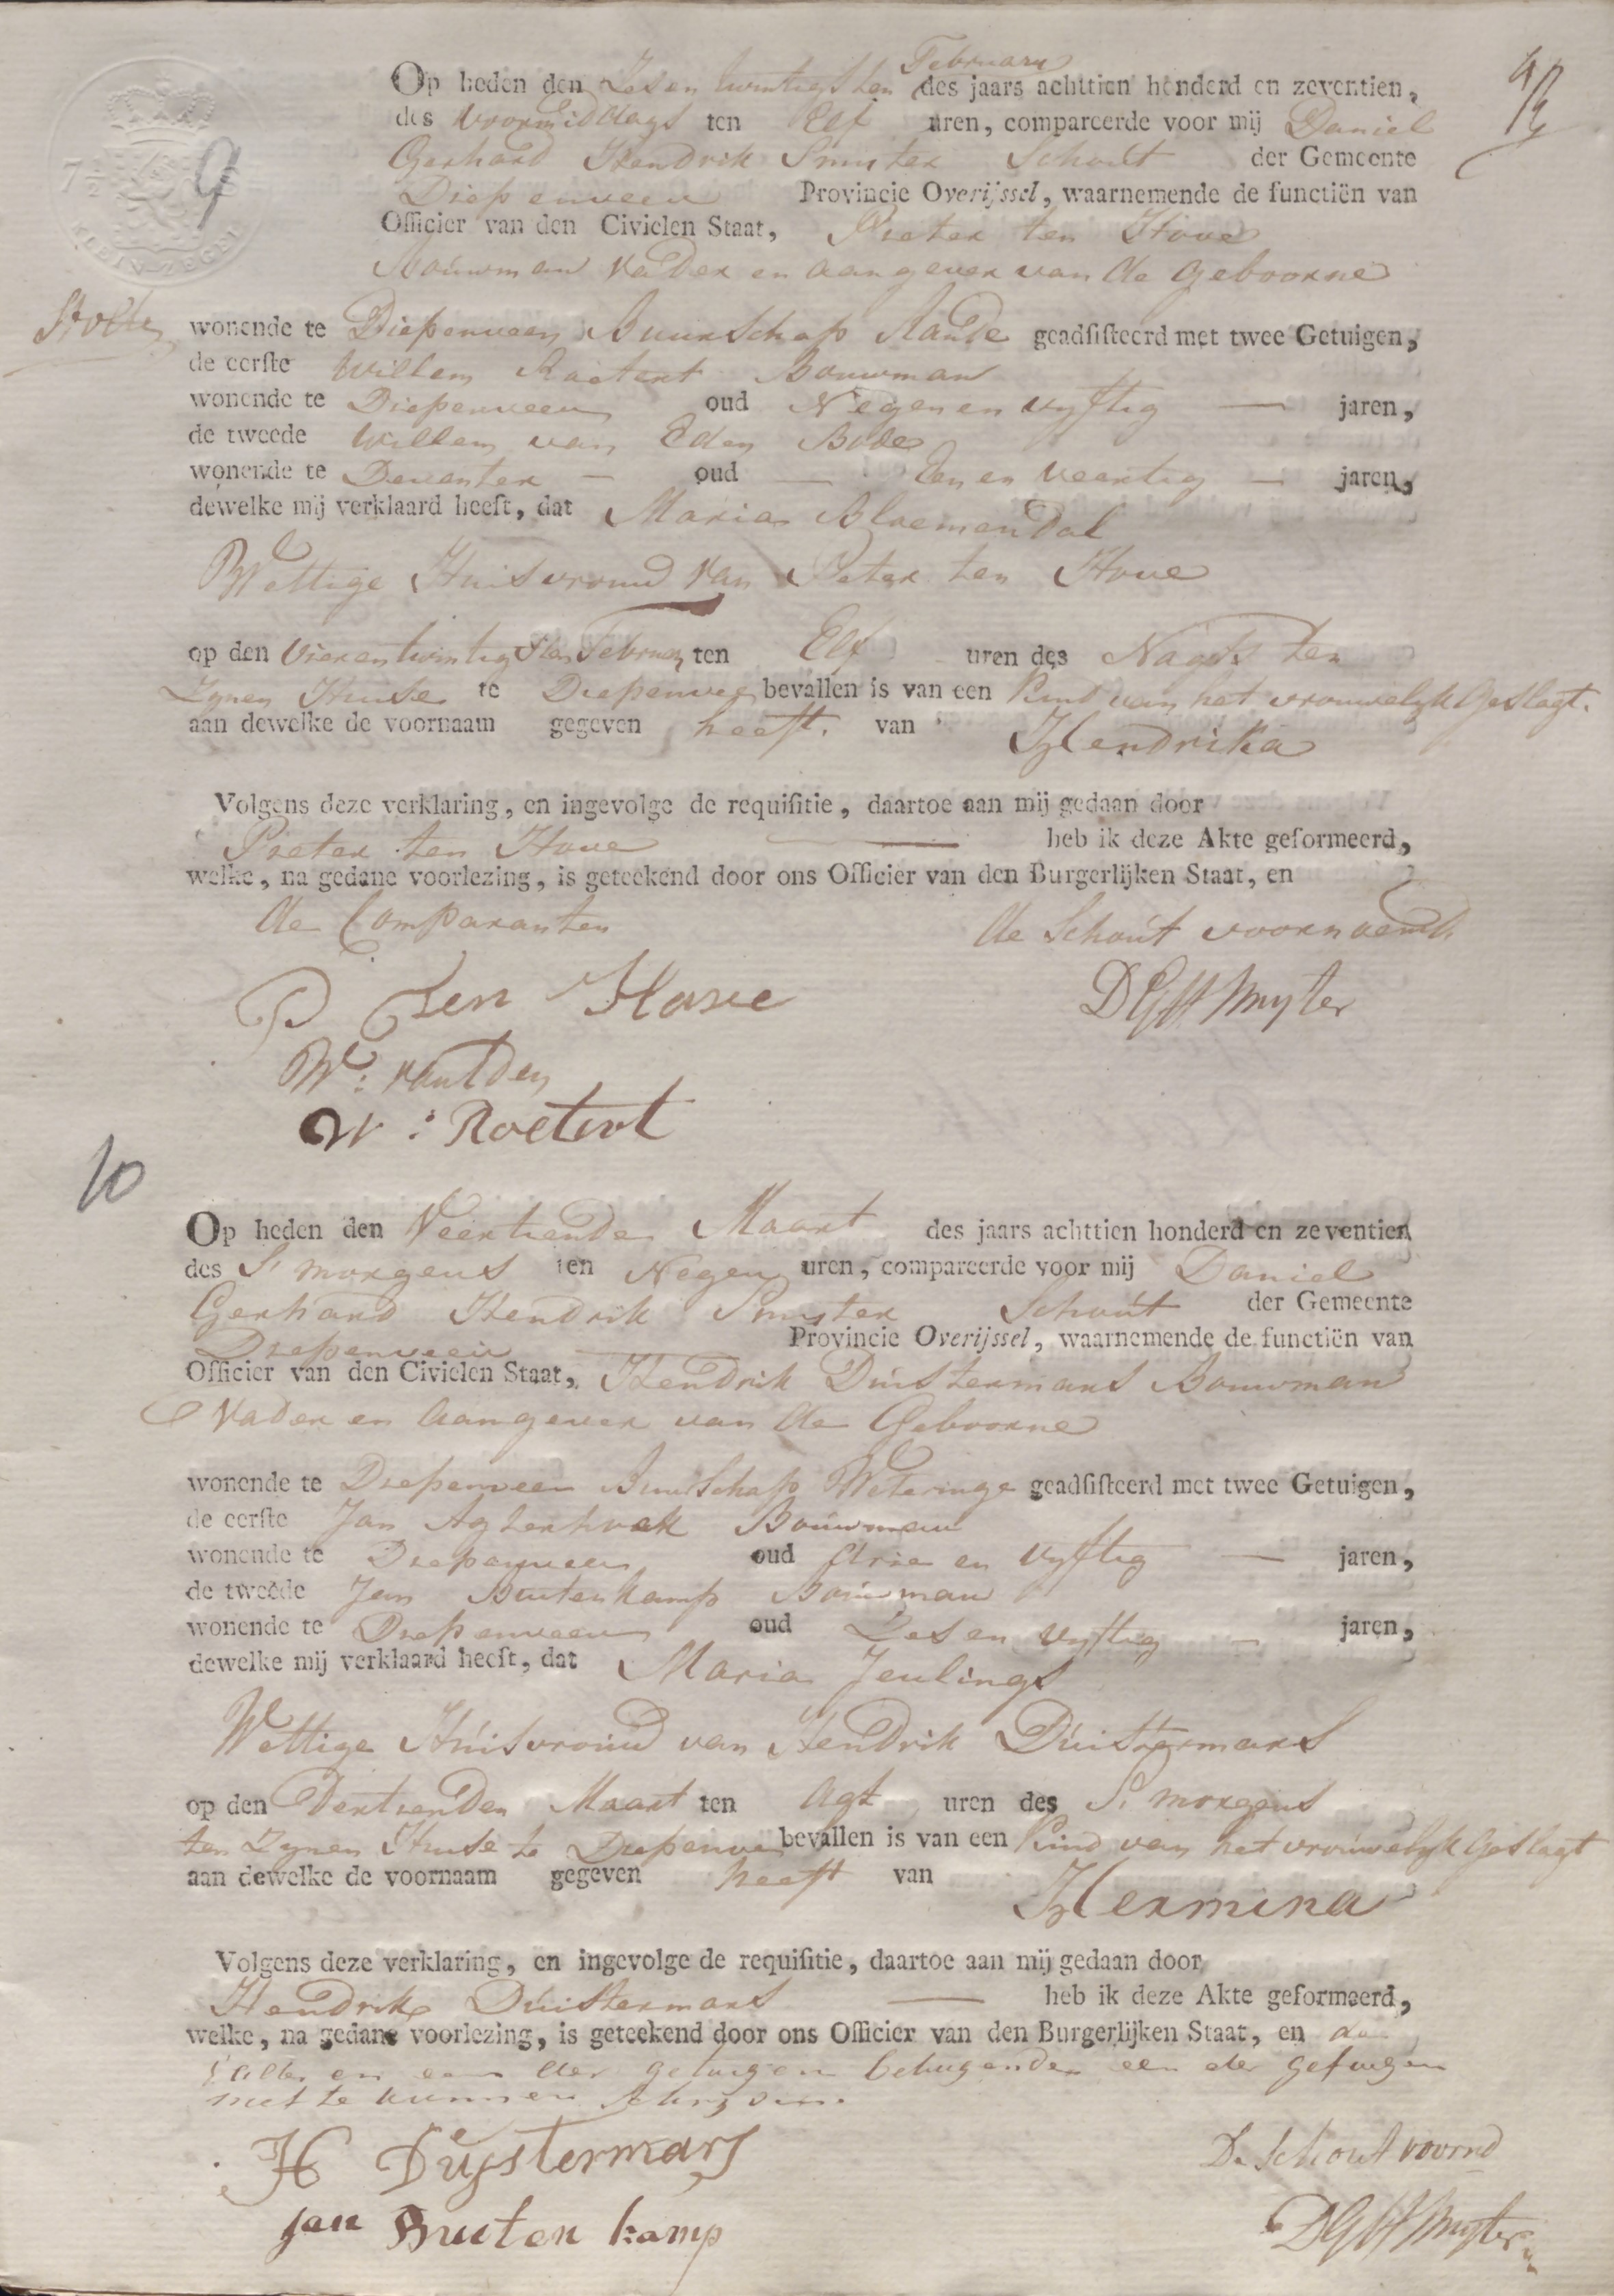 4/5
7½
9
KLEIN ZEGEL
February
Op heden den Zesen twintigsten des jaars achttien honderd en zeventien,
des Voormiddags ten Elf uren, compareerde voor mij Daniel
Gerhard Hendrik Smijter Schout der Gemeente
Diepenveen Provincie Overijssel, waarnemende de functiën van
Officier van den Civielen Staat, Pieter ten Hove
Bouwman Vader en aangever van de Geboorne
wonende te Diepenveen Buurschap Rande geadsisteerd met twee Getuigen,
de eerste Willem Roetert Bouwman
wonende te Diepenveen oud Negen en vyftig — jaren,
de tweede Willem van Eden Bode
wonende te Deventer — oud — Een en Veertig — jaren,
dewelke mij verklaard heeft, dat Maria Bloemendal
Wettige Huisvrouw van Peter ten Hove
op den Vierentwintigsten Februay ten Elf uren des Nagts ten
Zynen Huise te Diepenvee bevallen is van een Kind van het vrouwelyk Geslagt.
aan dewelke de voornaam gegeven heeft. van Hendrika
Volgens deze verklaring, en ingevolge de requisitie, daartoe aan mij gedaan door
Pieter ten Hove — heb ik deze Akte geformeerd,
welke, na gedane voorlezing, is geteekend door ons Officier van den Burgerlijken Staat, en
de Comparanten de Schout voornoemd.
P ten Hove DGH Smijter
W: van Eden
W: Roetert
10
Op heden den Veertiende Maart des jaars achttien honderd en zeventien
des S' morgens ten Negen uren, compareerde voor mij Daniel
Gerhard Hendrik Smijter Schout der Gemeente
Diepenveen Provincie Overijssel, waarnemende de functiën van
Officier van den Civielen Staat, Hendrik Duistermars Bouwman
Vader en Aangever van de Geboorne
wonende te Diepenveen Buurschap Weteringe geadsisteerd met twee Getuigen,
de eerste Jan Agterhoek Bouwman
wonende te Diepenveen oud drie en Vyftig — jaren,
de tweede Jan Buitenkamp Bouwman
wonende te Diepenveen oud Zes en vyftig — jaren,
dewelke mij verklaard heeft, dat Maria Jeulings
Wettige Huisvrouw van Hendrik Duistermars
op den Dertienden Maart ten Agt uren des S' morgens
ten Zynen Huise te Diepenve bevallen is van een Kind van het vrouwelyk Geslagt
aan dewelke de voornaam gegeven heeft van Hermina
Volgens deze verklaring, en ingevolge de requisitie, daartoe aan mij gedaan door
Hendrik Duistermars — heb ik deze Akte geformeerd,
welke, na gedane voorlezing, is geteekend door ons Officier van den Burgerlijken Staat, en de
Vader en een der getuigen betuigende een der getuigen
niet te kunnen schryven.
H Duÿstermars De Schout voornd
jan Buuten kamp DGH Smijter